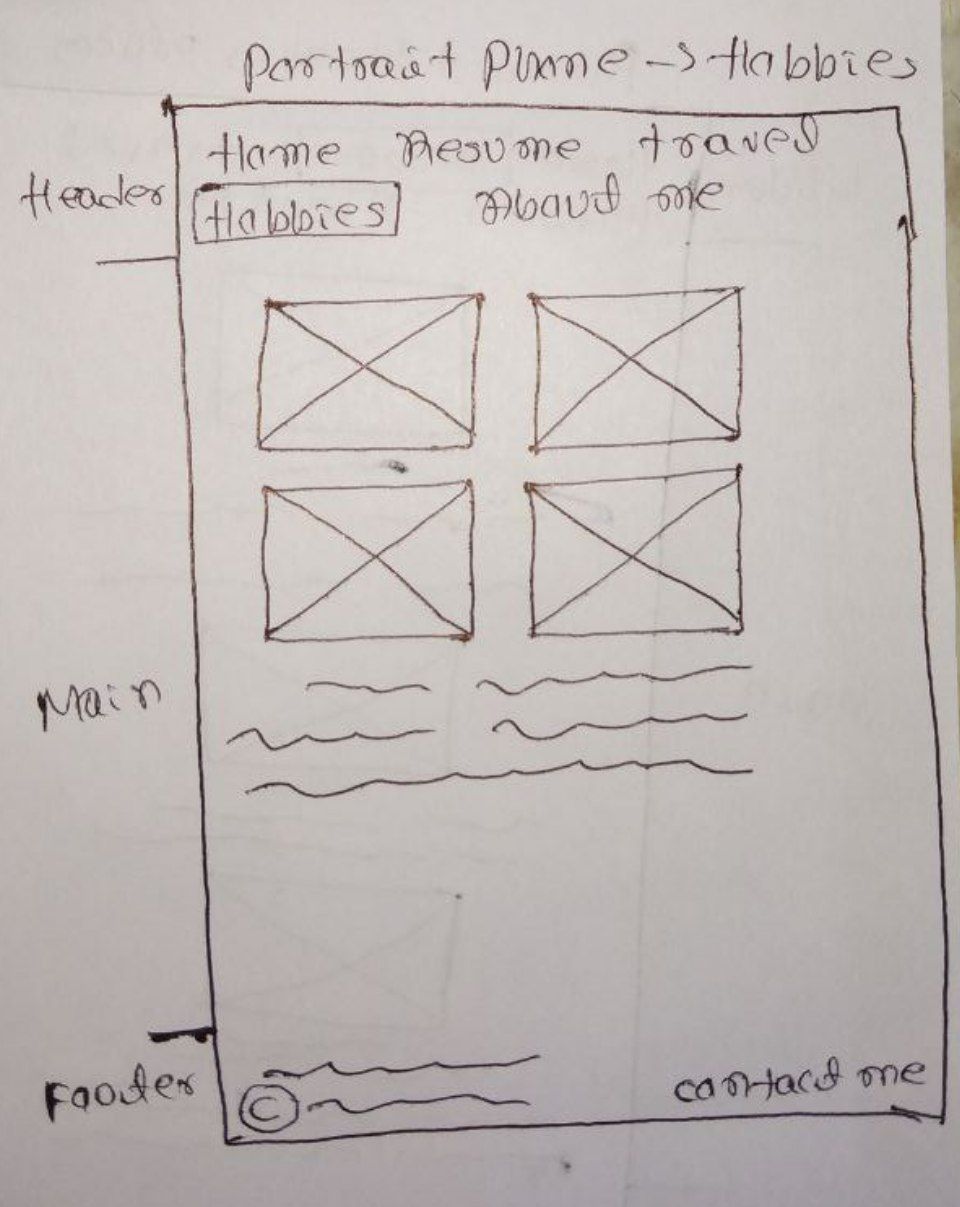 Portrait Phone -> Hobbies
Home Resume travel
Header
Hobbies About me
Main
Footer
© contact me